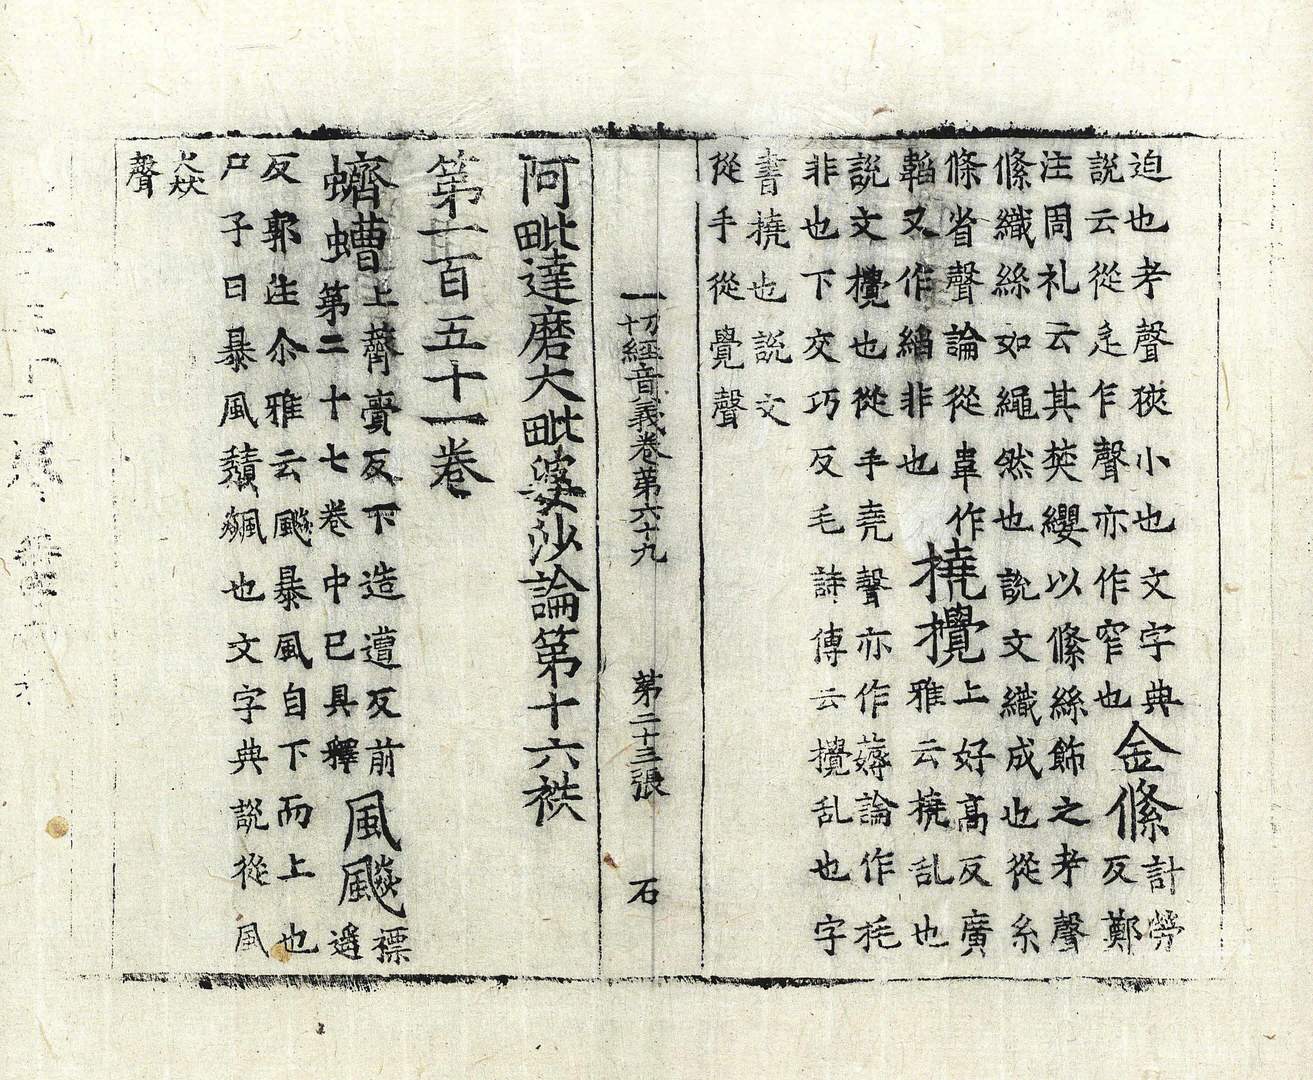 迫也考聲狹小也文字典
說云從辵乍聲亦作窄也
金絛
計勞
反鄭
注周礼云其樊纓以絛絲飾之考聲
絛織絲如繩然也說文織成也從糸
條省聲論從韋作
鞱又作縚非也
撓攪
上好高反廣
雅云撓乱也
說文攪也從手堯聲亦作薅論作秏
非也下交巧反毛詩傳云攪乱也字
書撓也說文
從手從覺聲
一切經音義卷第六十九 第二十三張 石
阿毗達磨大毗婆沙論第十六袟
第一百五十一卷
蠐螬
上薺賷反下造遭反前
第二十七卷中已具釋
風飈
褾
遥
反郭注尒雅云飈暴風自下而上也
尸子曰暴風穨飈也文字典說從風
猋
聲